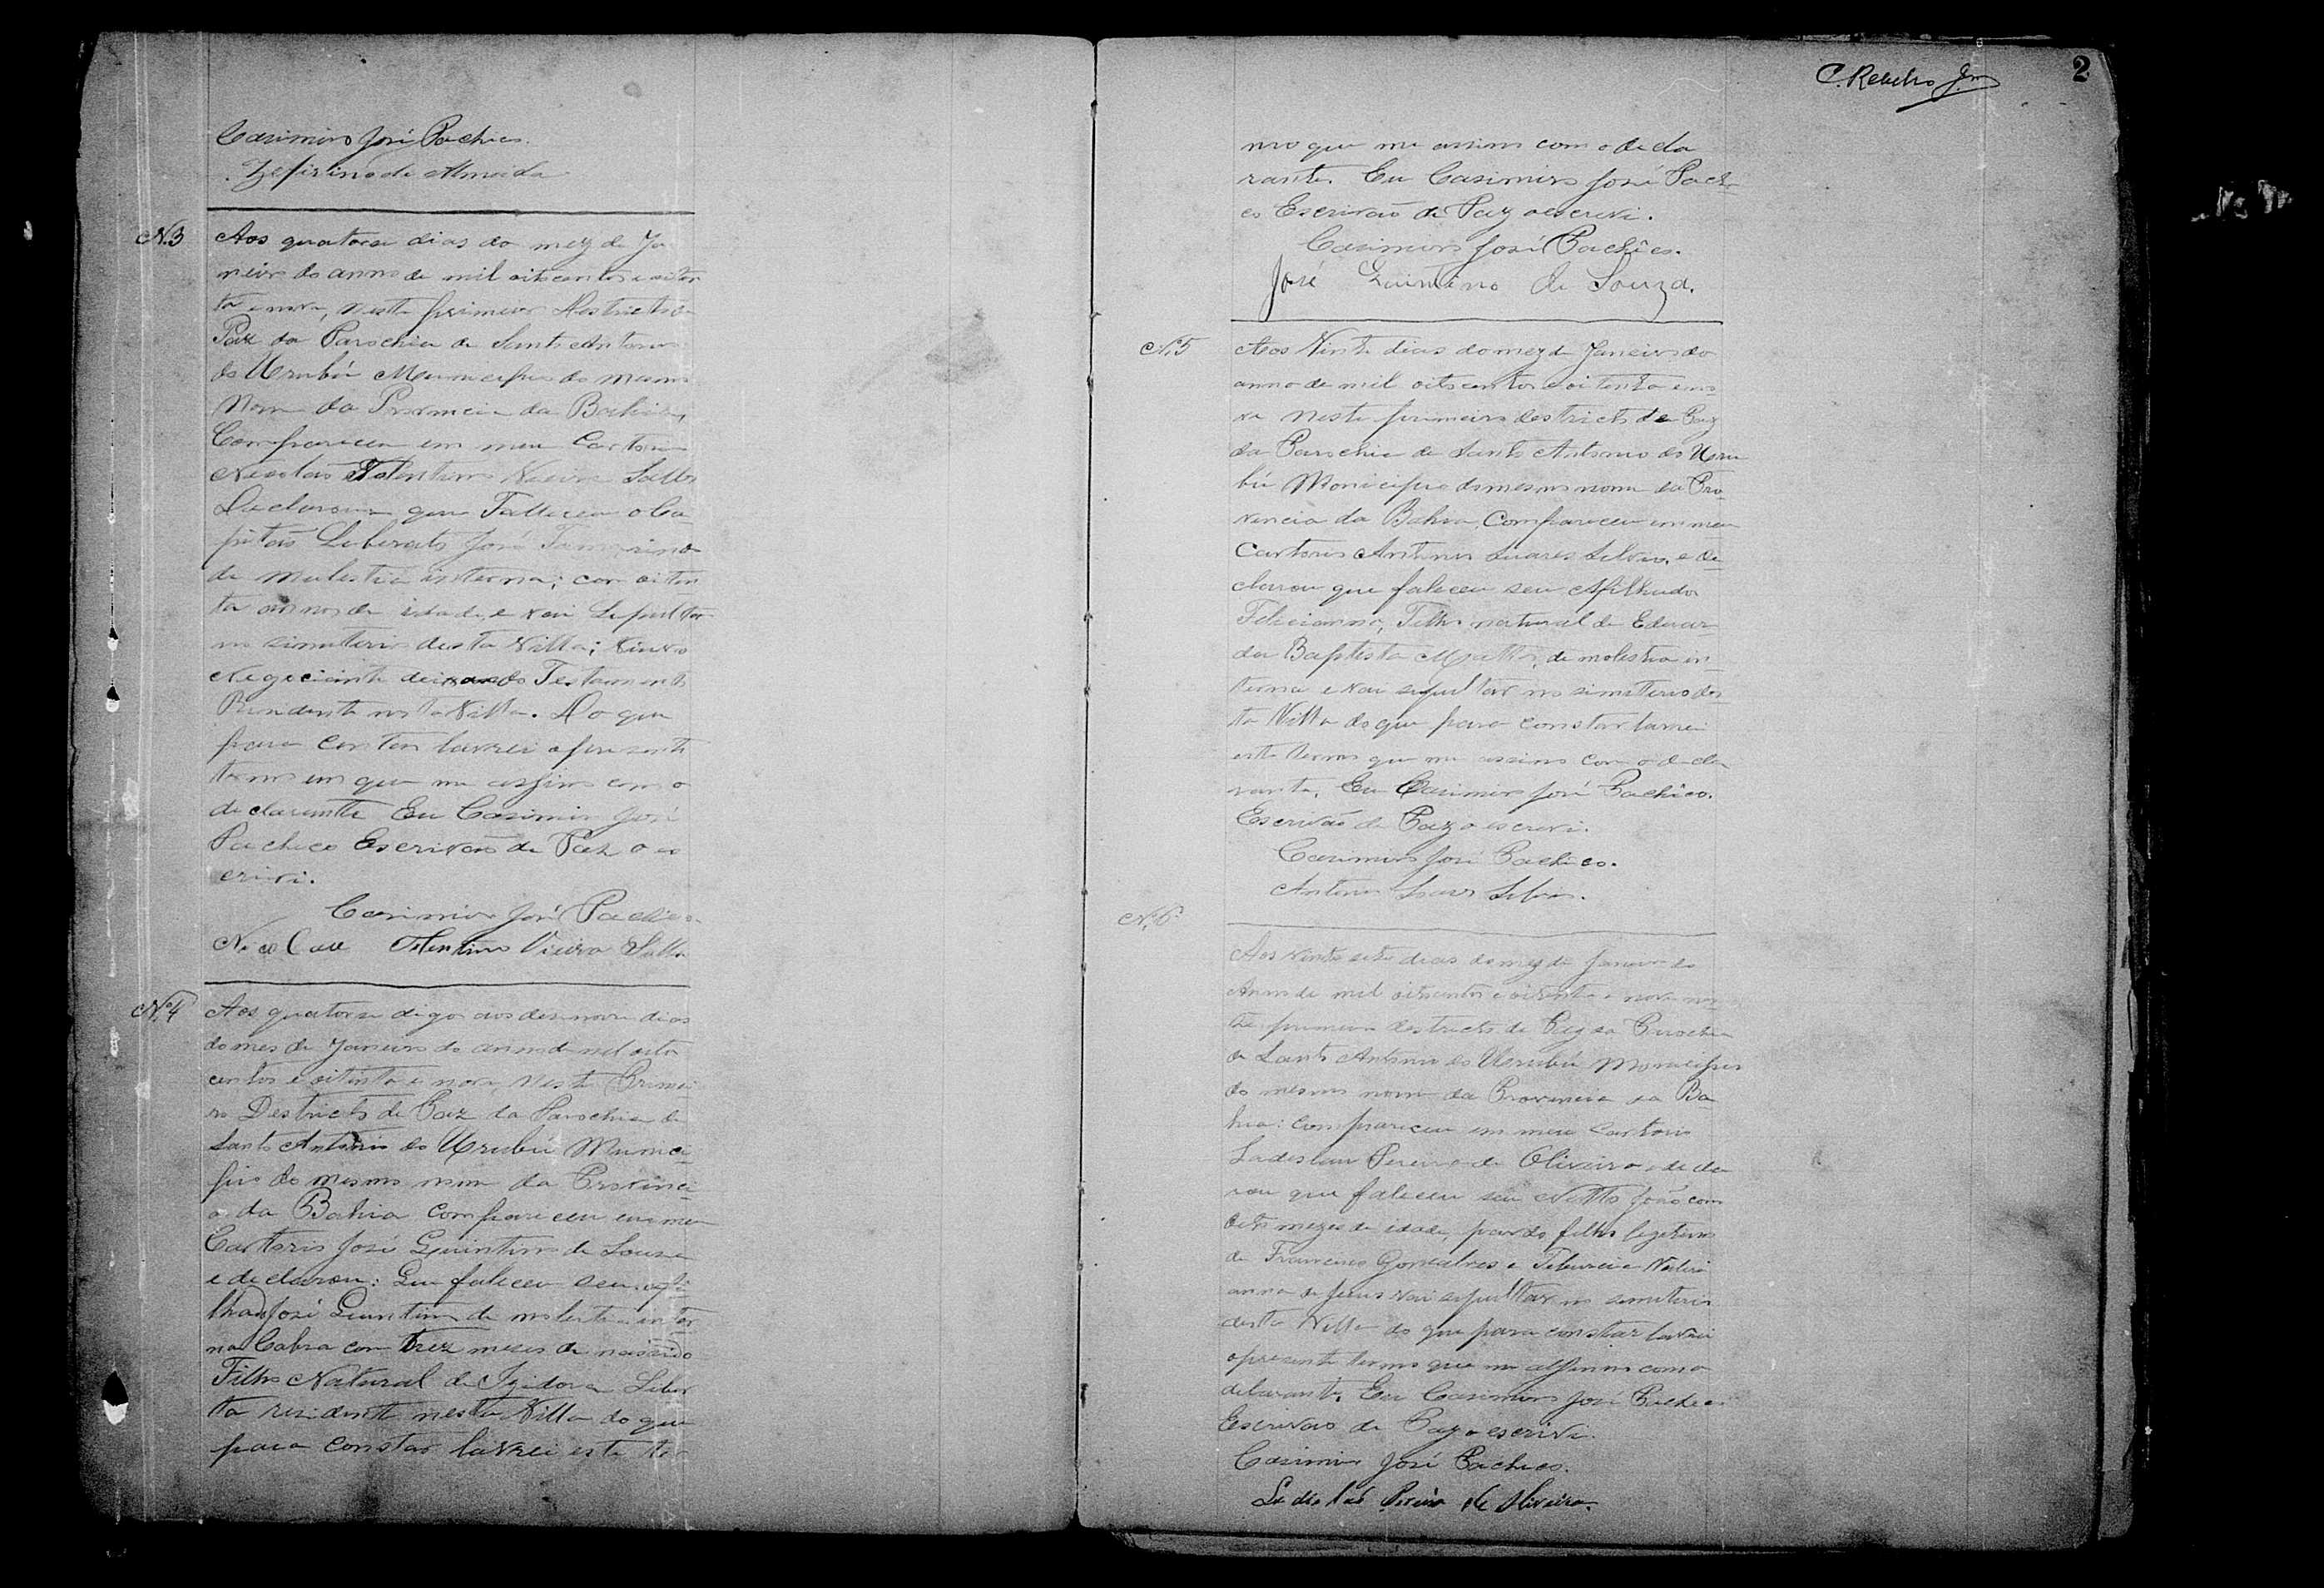 Casimiro José Pacheco.
Zefirino de Almeida
N.3
Aos quatorse dias do mez de Ja
neiro do anno de mil oitocentos e oiten
ta e nove, neste primeiro Destricto de
Paz da Parochia de Santo Antonio
do Urubú Municipio do mesmo
Nome da Provincia da Bahia,
Compareceu em meu Cartorio
Nicolao Tolentino Vieira Salles
Declarou que Falleceu o Ca
pitão Liberato José
de molestia interna; com oiten
ta annos de idade, e vai Sepultar
no simiterio desta Villa; Viuvo
Negociante deixando Testamento
Rendente nesta Villa. Do que
para constar lavrei o presente
termo em que me assino com o
declarante Eu Casimiro José
Pacheco Escrivão de Paz o es
crivi.
Casimiro José Pacheco
Nicolau Tolentino Vieira Salles
N.4
Aos quatorse digo aos desenove dias
do mes de Janeiro do anno de mil oito
centos e oitenta e nove, neste Primei
ro Destricto de Paz da Parochia de
Santo Antonio do Urubú Munici
pio do mesmo nome da Provinci
a da Bahia compareceu em meu
Cartorio José Quintino de Souza
e declarou: Que faleceu seu afi
lhado José Quintino de molestia inter
na Cabra com trez meses de nascido
Filho Natural de Izidora Liber
ta residente nesta Villa do que
para constar lavrei este ter
C. Rebello Jor
2
mo que me assino com o decla
rante. Eu Casimiro José Pache
co Escrivão de Paz o escrevi.
Casimiro José Pacheco.
José Quintino de Souza.
N.5
Aos Vinte dias do mez de Janeiro do
anno de mil oitocentos e oitenta e no
ve neste primeiro destricto de Paz
da Parochia de Santo Antonio do Uru
bú Monicipio do mesmo nome da Pro
vencia da Bahia, Compareceu em meu
Cartorio Antonio Soares e de
clarou que faleceu seu Afilhado
Feliciano, Filho natural de Eduar
da Baptista de molestia in
terna e vai sepultar no simiterio des
ta Villa do que para constar lavrei
este termo que me assino com o decla
rante. Eu Casimiro José Pacheco.
Escrivão de Paz o escrevi.
Casimiro José Pacheco.
Antonio Soares
N.6
Aos vinte sete dias do mez de Janeiro do
Anno de mil oitocentos e oitenta e nove nes
te primeiro destricto de Paz da Parochia
de Santo Antonio do Urubú Monicipio
do mesmo nome da Provincia da Ba
hia: compareceu em meu Cartorio
Ladeslau Pereira de Oliveira e decla
rou que faleceu seu Netto João com
oito mezes de idade, pardo filho legitimo
de Francisco Gonsalves e Teburcia
anna de Jesus vai sepultar no semiterio
desta Villa do que para constar lavrei
o presente termo que me assino com o
delarante. Eu Casimiro José Pacheco
Escrivão de Paz o escrivi.
Casimiro José Pacheco.
Ladisláo Pereira de Oliveira.